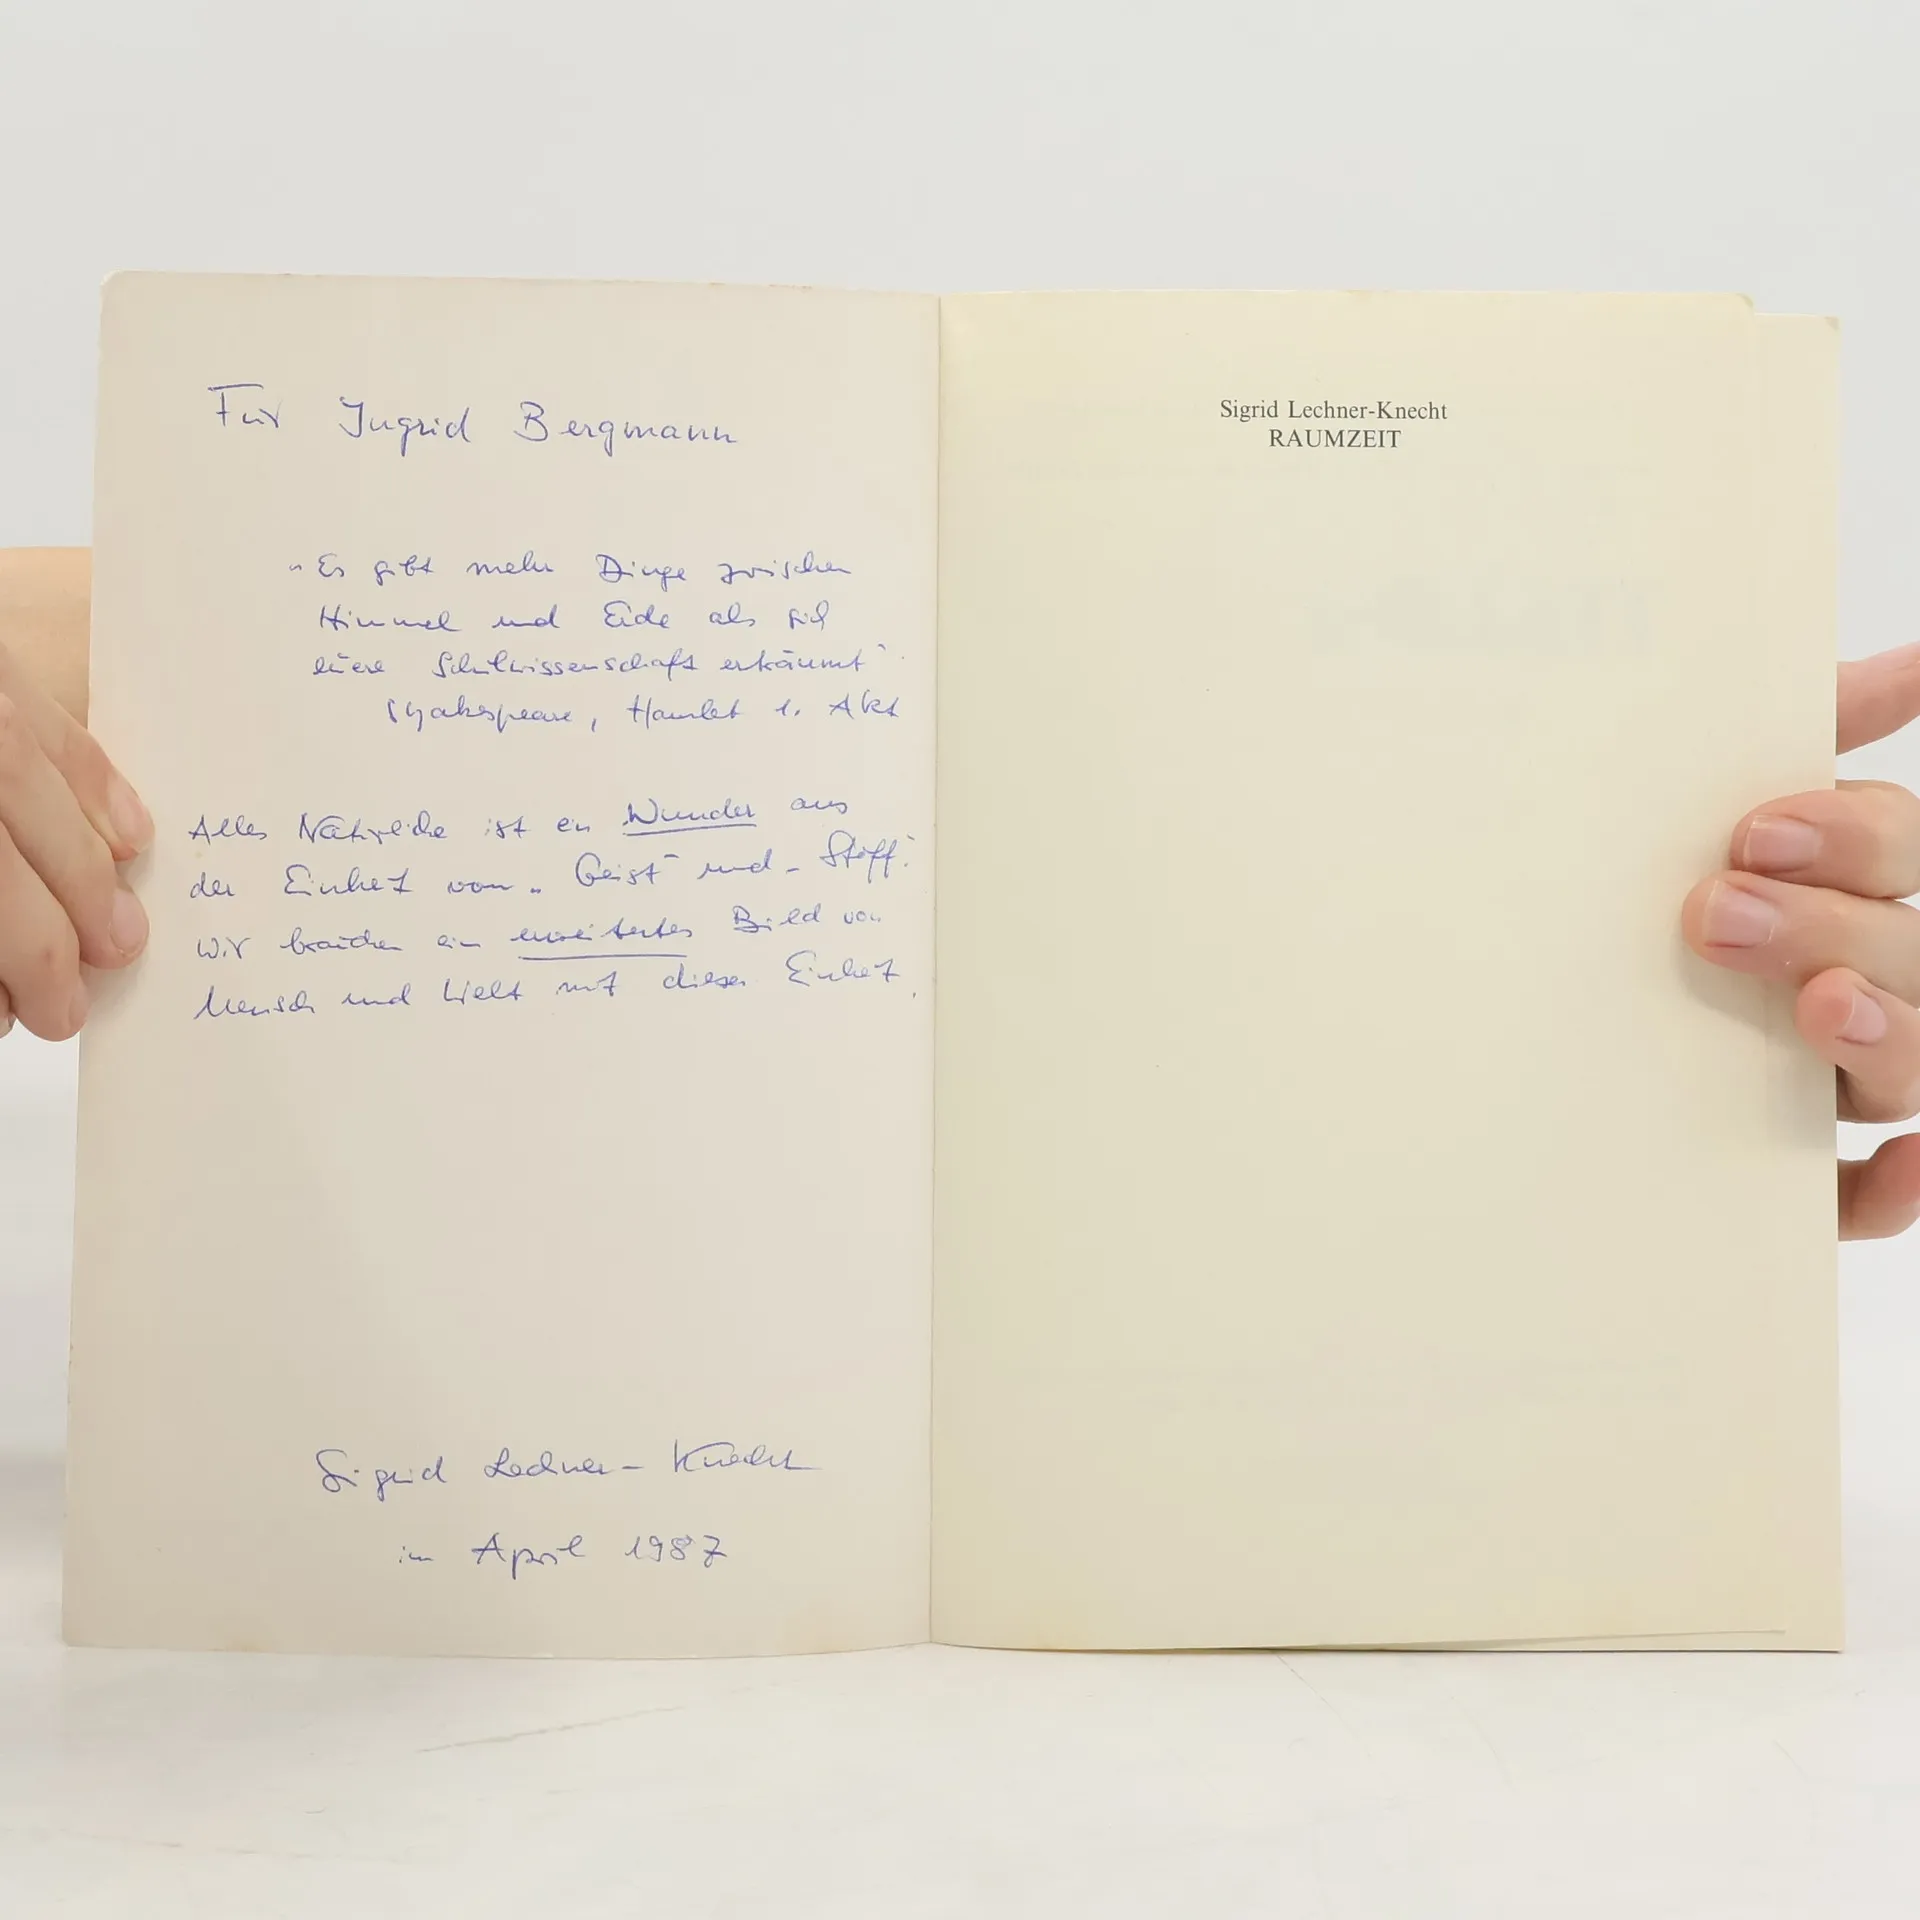 Für Ingrid Bergmann
"Es gibt mehr Dinge zwischen
Himmel und Erde als sich
eure Schulwissenschaft erträumt"
Shakespeare, Hamlet 1. Akt
Alles Natürliche ist ein Wunder aus
der Einheit von „Geist" und „Stoff".
Wir brauchen ein erweitertes Bild von
Mensch und Welt mit dieser Einheit.
Sigrid Lechner-Knecht
im April 1987
Sigrid Lechner-Knecht
RAUMZEIT